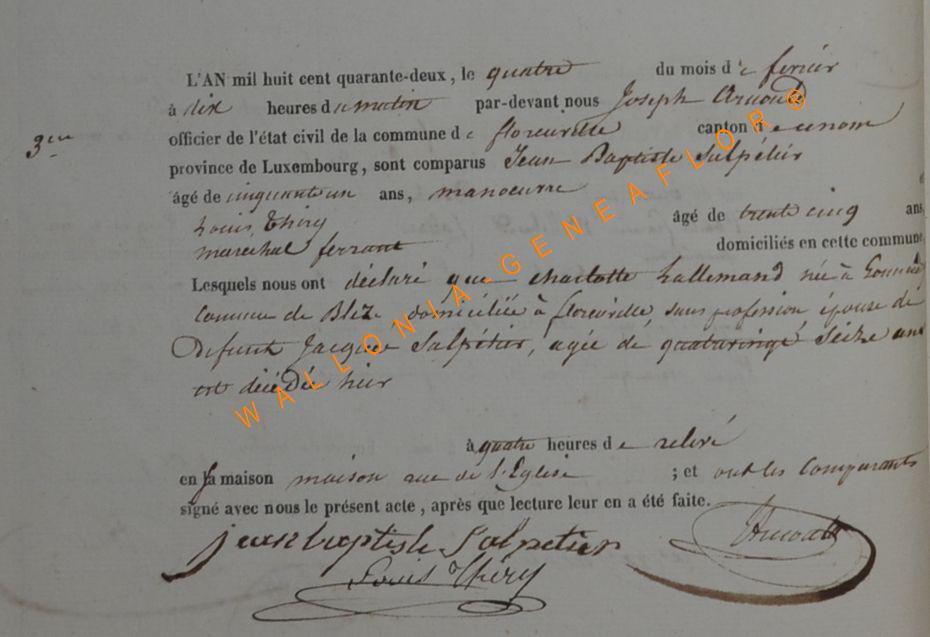 L'AN mil huit cent quarante-deux, le quatre du mois de fevrier
à dix heures du matin par-devant nous Joseph Arnould
3me officier de l'état civil de la commune de florenville canton de
province de Luxembourg, sont comparus Jean Baptiste Salpétier
âgé de cinquante un ans, manoeuvre et
Louis Thiry âgé de trente cinq ans
marechal ferrant domiciliés en cette commune
Lesquels nous ont déclaré que charlotte Lallemand née à
Commune de domiciliée à florenville, sans profession épouse de
défunt Jacques Salpétier, agée de quatrevingt seize ans
est décédée hier
à quatre heures de relevé
en sa maison maison rue de l'Eglise ; et ont les Comparants
signé avec nous le présent acte, après que lecture leur en a été faite.
jean baptiste Salpetier
Louis Thiry
WALLONIA-GENEAFLOR®